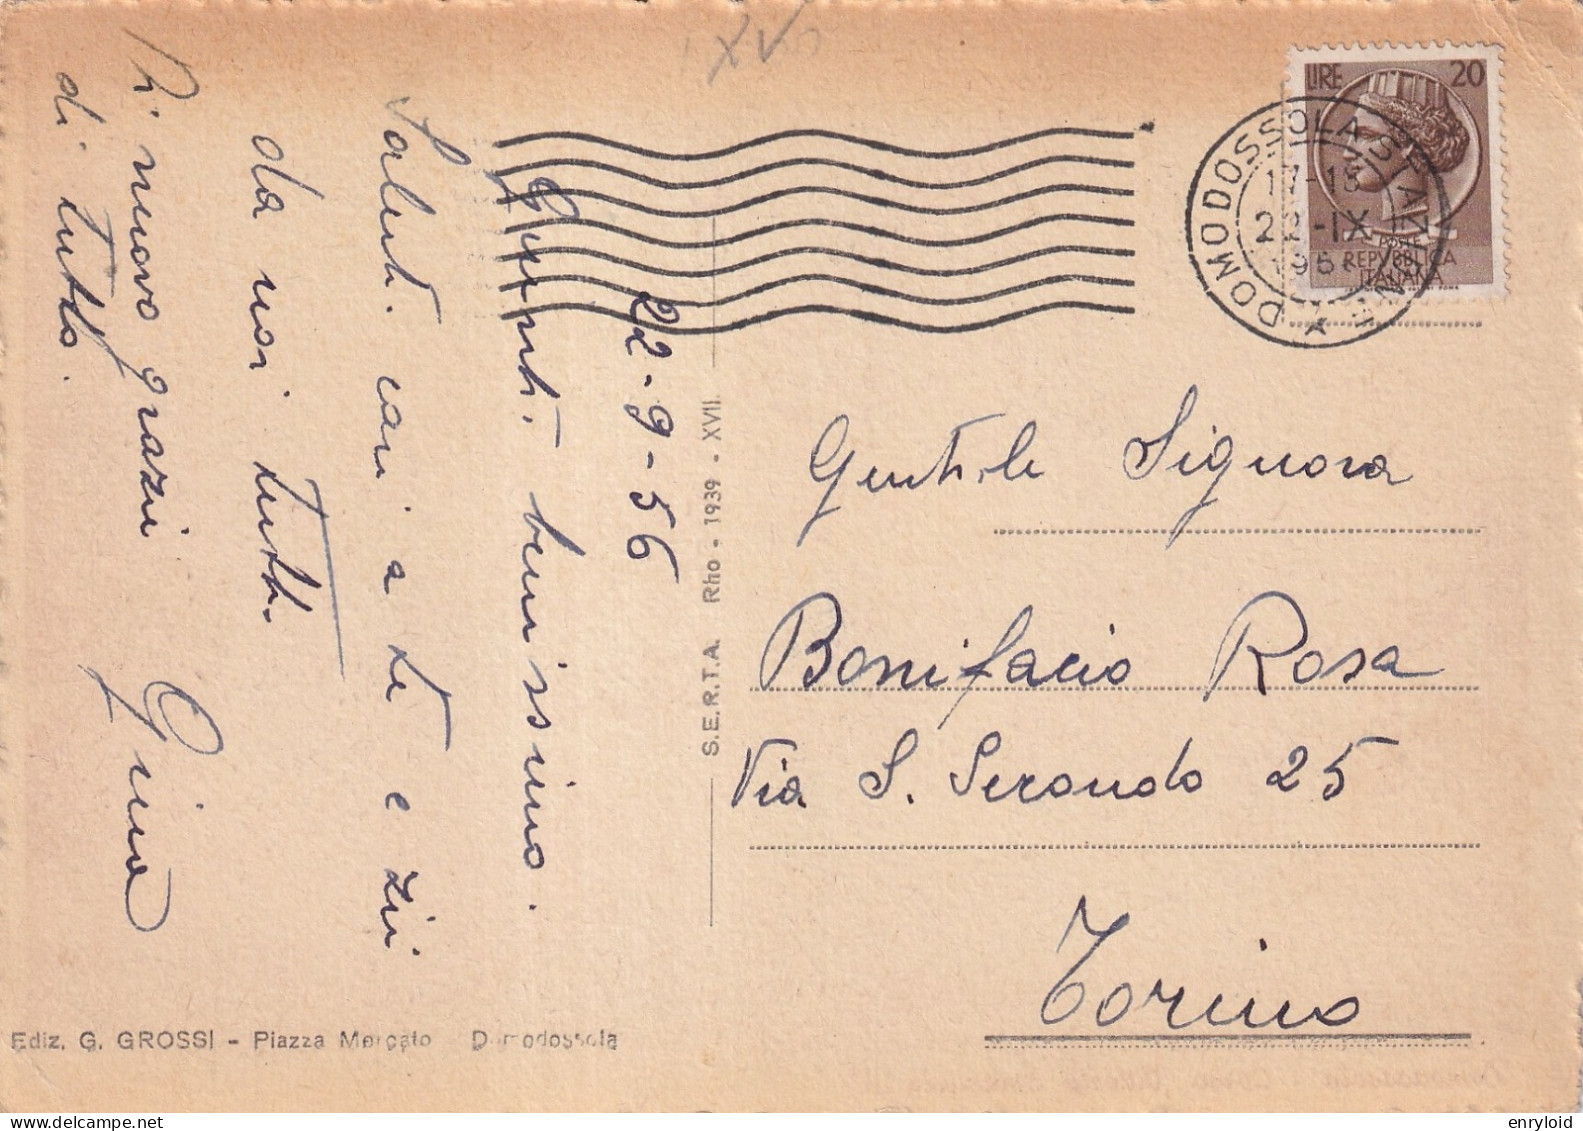 XV
LIRE 20
POSTE
REPVBBLICA
ITALIANA
DOMODOSSOLA
17-18
22-IX
22-9-56
Giunti benissimo.
Saluti cari a te e zii
da noi tutti.
Di nuovo grazie
di tutto.
Gina
S.E.R.T.A. Rho - 1939 - XVII.
Gentile Signora
Bonifacio Rosa
Via S. Secondo 25
Torino
Ediz. G. GROSSI - Piazza Mercato Domodossola
enryloid